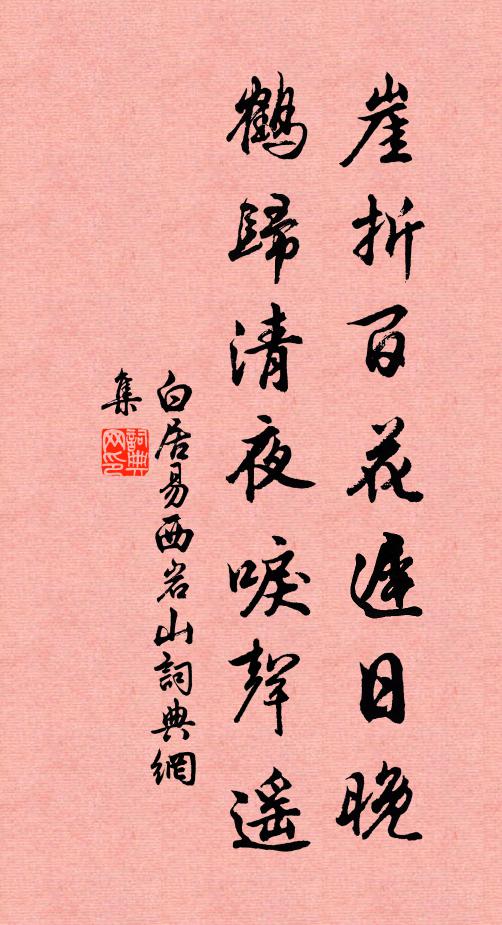 崖折百花遲日晚
鶴歸清夜唳聲遥
白居易西岩山詞典網
集
詞典网印